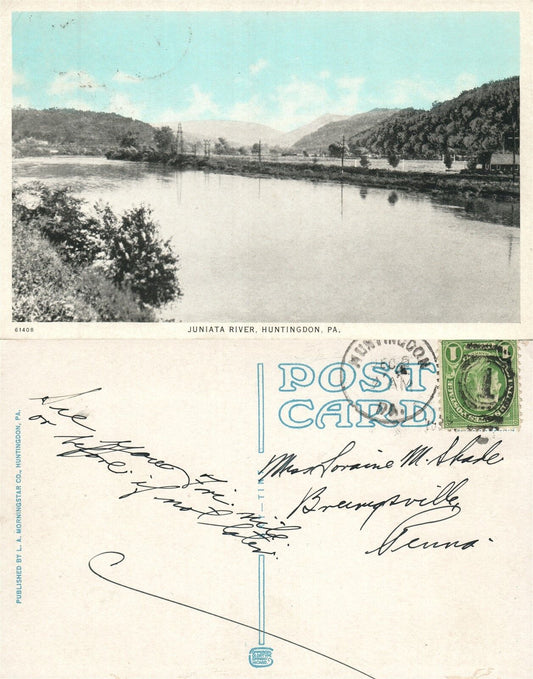 61408
JUNIATA RIVER, HUNTINGDON, PA.
POST
CARD
HUNTINGDON
DEC
PA.
1
1
PUBLISHED BY L. A. MORNINGSTAR CO., HUNTINGDON, PA.
See you Fri. nite
or before if not later.
Miss Loraine M. Shade
Penna.